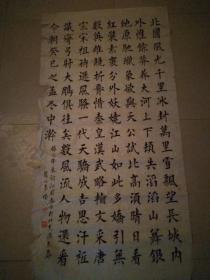 北國風光千里冰封萬里雪飄望長城內
外惟餘莽莽大河上下頓失滔滔山舞銀
蛇原馳蠟象欲與天公試比高須晴日看
紅裝素裹分外妖嬈江山如此多嬌引無
數英雄競折腰惜秦皇漢武略輸文采唐
宗宋祖稍遜風騷一代天驕成吉思汗祇
識彎弓射大鵰俱往矣數風流人物還看
今朝癸巳之孟冬中澣